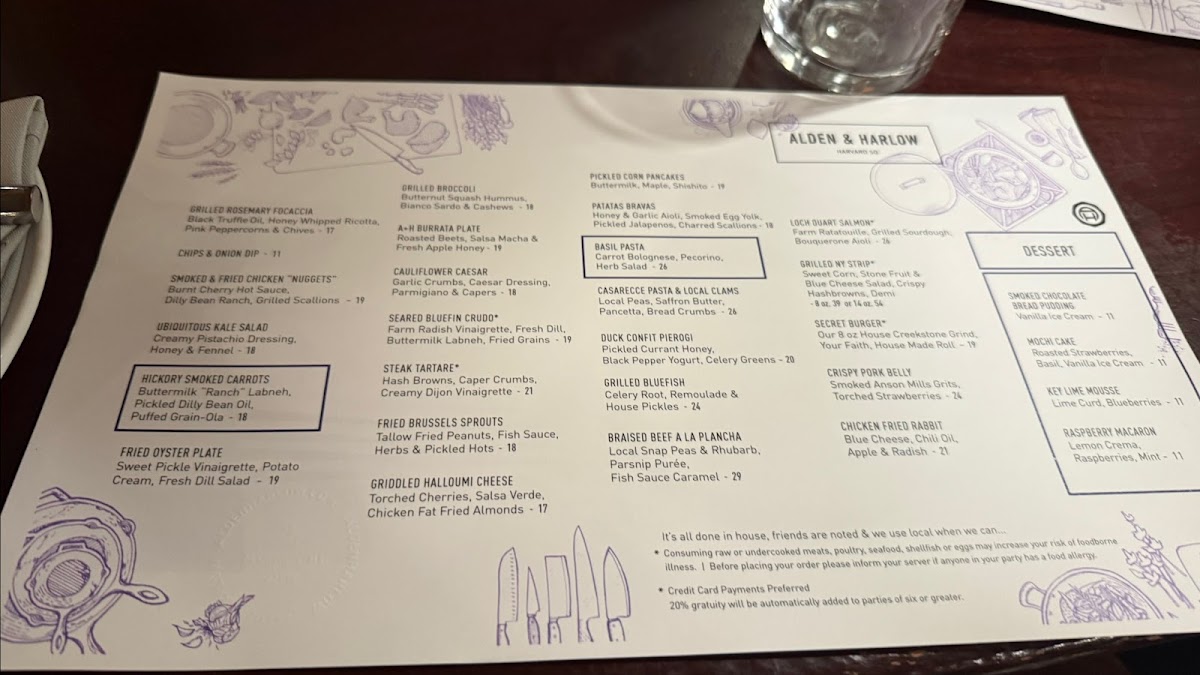 ALDEN & HARLOW
HARVARD SQ.
GRILLED ROSEMARY FOCACCIA
Black Truffle Oil, Honey Whipped Ricotta,
Pink Peppercorns & Chives - 17
CHIPS & ONION DIP - 11
SMOKED & FRIED CHICKEN "NUGGETS"
Burnt Cherry Hot Sauce,
Dilly Bean Ranch, Grilled Scallions - 19
UBIQUITOUS KALE SALAD
Creamy Pistachio Dressing,
Honey & Fennel - 18
HICKORY SMOKED CARROTS
Buttermilk "Ranch" Labneh,
Pickled Dilly Bean Oil,
Puffed Grain-Ola - 18
FRIED OYSTER PLATE
Sweet Pickle Vinaigrette, Potato
Cream, Fresh Dill Salad - 19
GRILLED BROCCOLI
Butternut Squash Hummus,
Bianco Sardo & Cashews - 18
A+H BURRATA PLATE
Roasted Beets, Salsa Macha &
Fresh Apple Honey - 19
CAULIFLOWER CAESAR
Garlic Crumbs, Caesar Dressing,
Parmigiano & Capers - 18
SEARED BLUEFIN CRUDO*
Farm Radish Vinaigrette, Fresh Dill,
Buttermilk Labneh, Fried Grains - 19
STEAK TARTARE*
Hash Browns, Caper Crumbs,
Creamy Dijon Vinaigrette - 21
FRIED BRUSSELS SPROUTS
Tallow Fried Peanuts, Fish Sauce,
Herbs & Pickled Hots - 18
GRIDDLED HALLOUMI CHEESE
Torched Cherries, Salsa Verde,
Chicken Fat Fried Almonds - 17
PICKLED CORN PANCAKES
Buttermilk, Maple, Shishito - 19
PATATAS BRAVAS
Honey & Garlic Aioli, Smoked Egg Yolk,
Pickled Jalapenos, Charred Scallions - 18
BASIL PASTA
Carrot Bolognese, Pecorino,
Herb Salad - 26
CASARECCE PASTA & LOCAL CLAMS
Local Peas, Saffron Butter,
Pancetta, Bread Crumbs - 26
DUCK CONFIT PIEROGI
Pickled Currant Honey,
Black Pepper Yogurt, Celery Greens - 20
GRILLED BLUEFISH
Celery Root, Remoulade &
House Pickles - 24
BRAISED BEEF A LA PLANCHA
Local Snap Peas & Rhubarb,
Parsnip Purée,
Fish Sauce Caramel - 29
LOCH DUART SALMON*
Farm Ratatouille, Grilled Sourdough,
Bouquerone Aioli - 26
GRILLED NY STRIP*
Sweet Corn, Stone Fruit &
Blue Cheese Salad, Crispy
Hashbrowns, Demi
- 8 oz. 39 or 14 oz. 54
SECRET BURGER*
Our 8 oz House Creekstone Grind,
Your Faith, House Made Roll - 19
CRISPY PORK BELLY
Smoked Anson Mills Grits,
Torched Strawberries - 24
CHICKEN FRIED RABBIT
Blue Cheese, Chili Oil,
Apple & Radish - 21
DESSERT
SMOKED CHOCOLATE
BREAD PUDDING
Vanilla Ice Cream - 11
MOCHI CAKE
Roasted Strawberries,
Basil, Vanilla Ice Cream - 11
KEY LIME MOUSSE
Lime Curd, Blueberries - 11
RASPBERRY MACARON
Lemon Crema,
Raspberries, Mint - 11
It's all done in house, friends are noted & we use local when we can...
* Consuming raw or undercooked meats, poultry, seafood, shellfish or eggs may increase your risk of foodborne
illness. | Before placing your order please inform your server if anyone in your party has a food allergy.
* Credit Card Payments Preferred
20% gratuity will be automatically added to parties of six or greater.